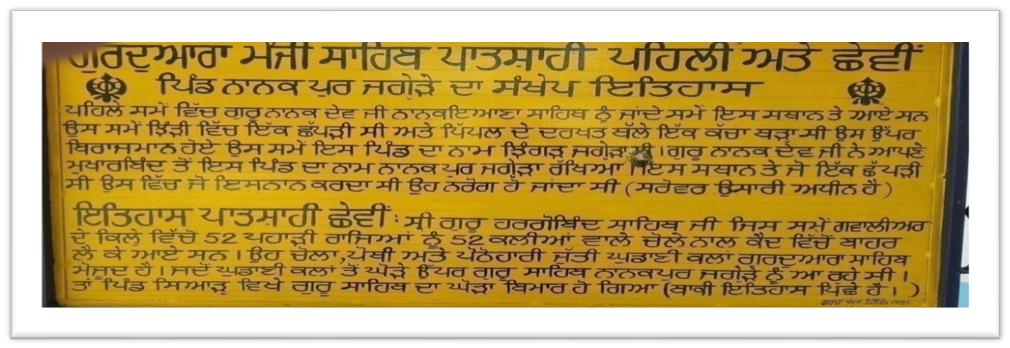 ਗੁਰਦੁਆਰਾ ਮੰਜੀ ਸਾਹਿਬ ਪਾਤਸ਼ਾਹੀ ਪਹਿਲੀ ਅਤੇ ਛੇਵੀਂ
ਪਿੰਡ ਨਾਨਕ ਪੁਰ ਜਗੇੜੇ ਦਾ ਸੰਖੇਪ ਇਤਿਹਾਸ
ਪਹਿਲੇ ਸਮੇਂ ਵਿੱਚ ਗੁਰੂ ਨਾਨਕ ਦੇਵ ਜੀ ਨਾਨਕਇਆਣਾ ਸਾਹਿਬ ਨੂੰ ਜਾਂਦੇ ਸਮੇਂ ਇਸ ਸਥਾਨ ਤੇ ਆਏ ਸਨ
ਉਸ ਸਮੇਂ ਝਿੜੀ ਵਿੱਚ ਇੱਕ ਛੱਪੜੀ ਸੀ ਅਤੇ ਪਿੱਪਲ ਦੇ ਦਰਖਤ ਥੱਲੇ ਇੱਕ ਕੱਚਾ ਥੜਾ ਸੀ ਉਸ ਉੱਪਰ
ਬਿਰਾਜਮਾਨ ਹੋਏ ਉਸ ਸਮੇਂ ਇਸ ਪਿੰਡ ਦਾ ਨਾਮ ਝਿੰਗੜ ਜਗੇੜਾ ਸੀ। ਗੁਰੂ ਨਾਨਕ ਦੇਵ ਜੀ ਨੇ ਆਪਣੇ
ਮੁਖਾਰਬਿੰਦ ਤੋਂ ਇਸ ਪਿੰਡ ਦਾ ਨਾਮ ਨਾਨਕ ਪੁਰ ਜਗੇੜਾ ਰੱਖਿਆ ਇਸ ਸਥਾਨ ਤੇ ਜੋ ਇੱਕ ਛੱਪੜੀ
ਸੀ ਉਸ ਵਿੱਚ ਜੋ ਇਸਨਾਨ ਕਰਦਾ ਸੀ ਉਹ ਨਰੋਗ ਹੋ ਜਾਂਦਾ ਸੀ (ਸਰੋਵਰ ਉਸਾਰੀ ਅਧੀਨ ਹੈ)
ਇਤਿਹਾਸ ਪਾਤਸ਼ਾਹੀ ਛੇਵੀਂ : ਸ੍ਰੀ ਗੁਰੂ ਹਰਗੋਬਿੰਦ ਸਾਹਿਬ ਜੀ ਜਿਸ ਸਮੇਂ ਗਵਾਲੀਅਰ
ਦੇ ਕਿਲੇ ਵਿੱਚੋਂ 52 ਪਹਾੜੀ ਰਾਜਿਆਂ ਨੂੰ 52 ਕਲੀਆਂ ਵਾਲੇ ਚੋਲੇ ਨਾਲ ਕੈਦ ਵਿੱਚੋਂ ਬਾਹਰ
ਲੈ ਕੇ ਆਏ ਸਨ। ਉਹ ਚੋਲਾ, ਪੋਥੀ ਅਤੇ ਪੋਠੋਹਾਰੀ ਜੁੱਤੀ ਘੁਡਾਣੀ ਕਲਾਂ ਗੁਰਦੁਆਰਾ ਸਾਹਿਬ
ਮੌਜੂਦ ਹੈ। ਜਦੋਂ ਘੁਡਾਣੀ ਕਲਾਂ ਤੋਂ ਘੋੜੇ ਉੱਪਰ ਗੁਰੂ ਸਾਹਿਬ ਨਾਨਕਪੁਰ ਜਗੇੜੇ ਨੂੰ ਆ ਰਹੇ ਸੀ।
ਤਾਂ ਪਿੰਡ ਸਿਆੜ੍ਹ ਵਿਖੇ ਗੁਰੂ ਸਾਹਿਬ ਦਾ ਘੋੜਾ ਬਿਮਾਰ ਹੋ ਗਿਆ (ਬਾਕੀ ਇਤਿਹਾਸ ਪਿੱਛੇ ਹੈ।)